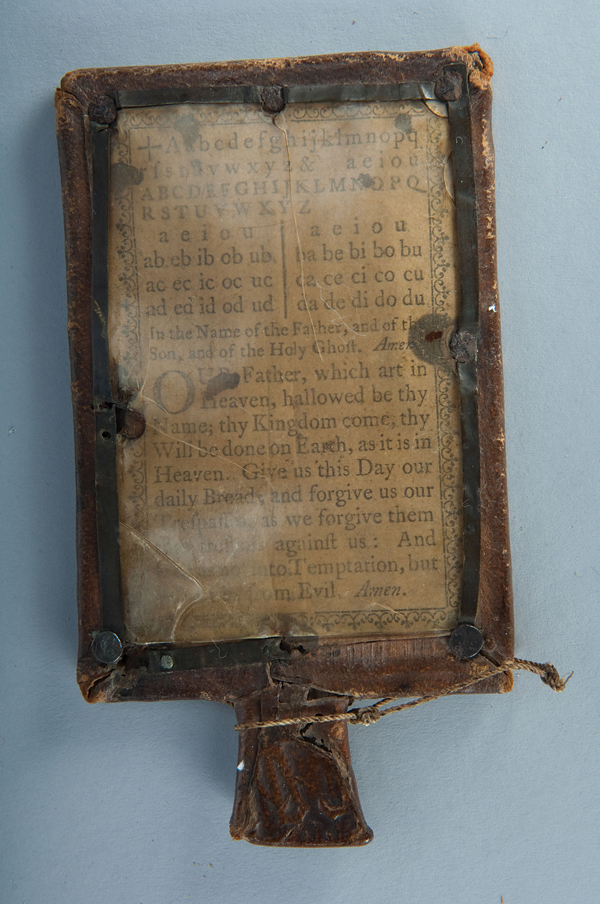 ✠Aabcdefghijklmnopq
rſstuvwxyz& a e i o u
ABCDEFGHIJKLMNOPQ
RSTUVWXYZ
a e i o u a e i o u
ab eb ib ob ub ba be bi bo bu
ac ec ic oc uc ca ce ci co cu
ad ed id od ud da de di do du
In the Name of the Father, and of the
Son, and of the Holy Ghoſt. Amen.
OUR Father, which art in
Heaven, hallowed be thy
Name; thy Kingdom come, thy
Will be done on Earth, as it is in
Heaven. Give us this Day our
daily Bread, and forgive us our
as we forgive them
againſt us: And
not into Temptation, but
from Evil. Amen.